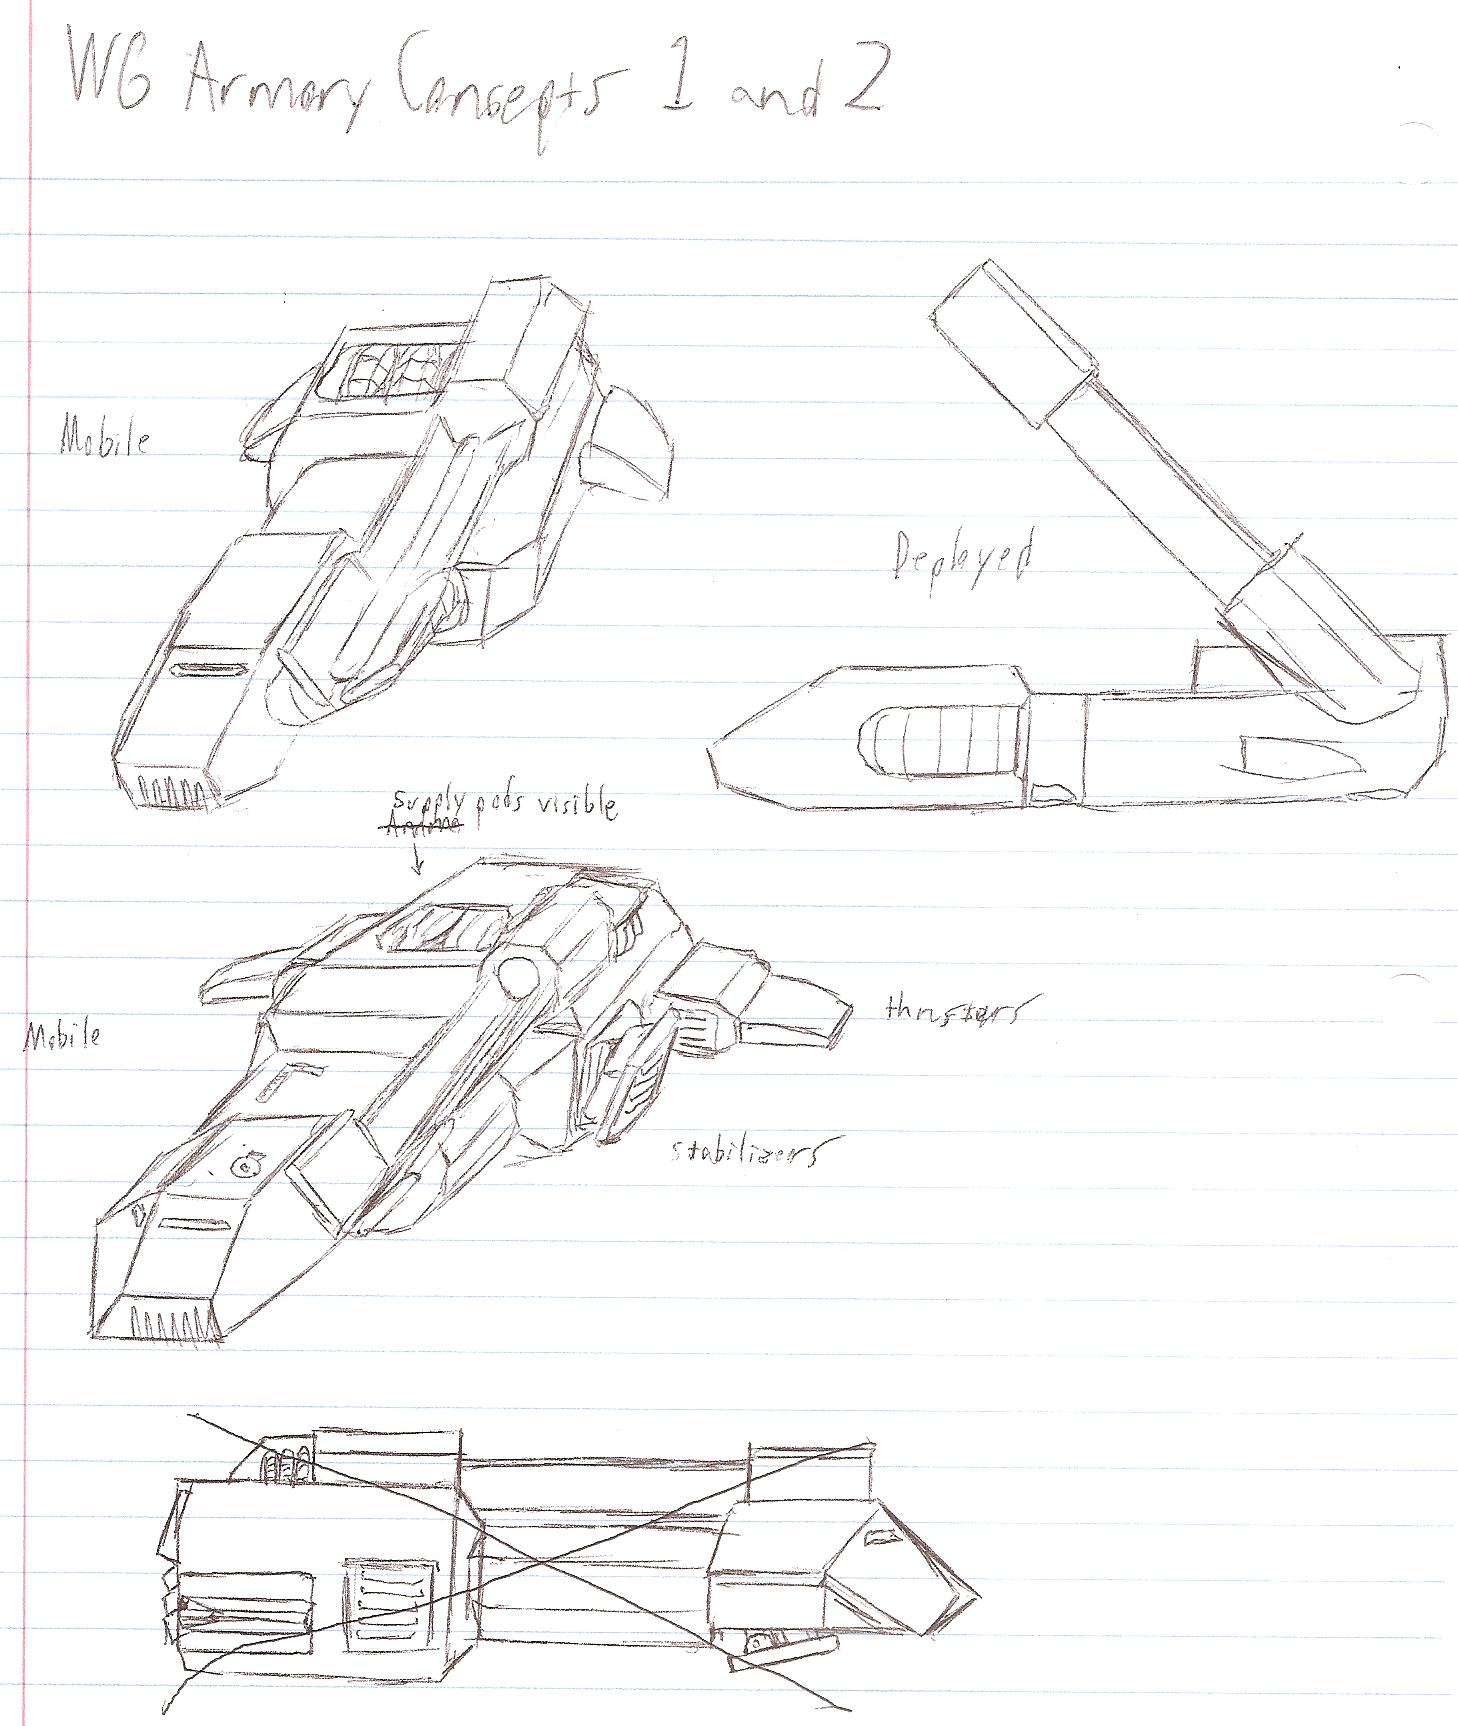 WG Armory Concepts 1 and 2
Mobile
Deployed
Supply pods visible
Mobile
thrusters
stabilizers